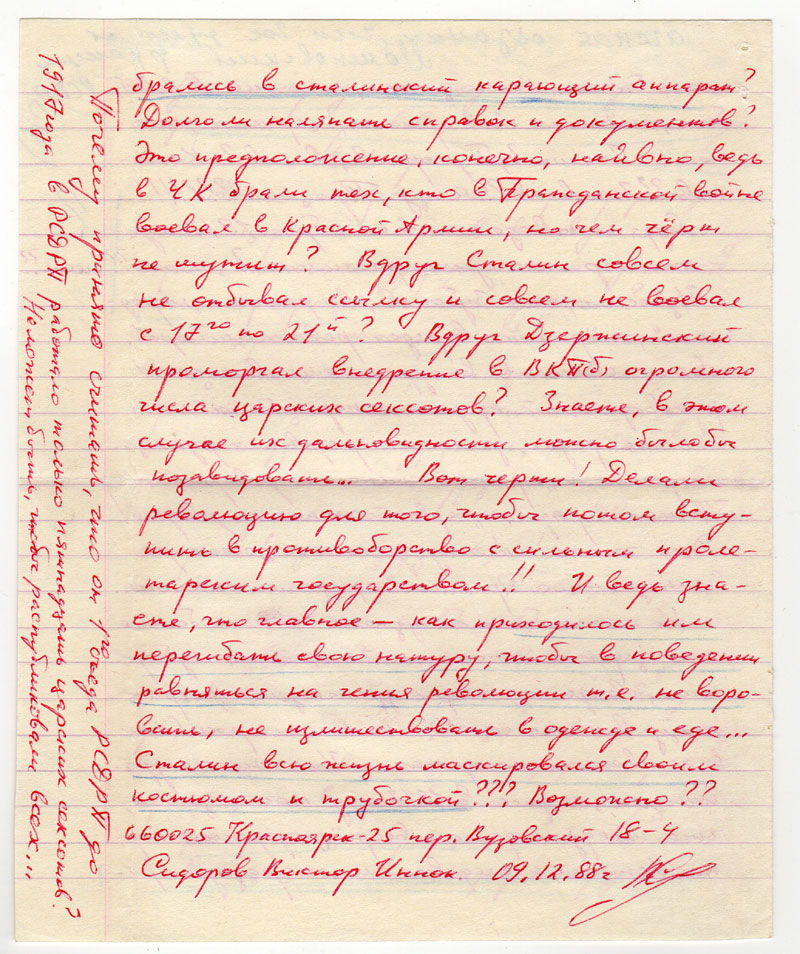 брались в сталинский карающий аппарат?
Долго ли наляпать справок и документов?
Это предположение, конечно, наивно, ведь
в ЧК брали тех, кто в Гражданской войне
воевал в Красной Армии, но чем чёрт
не шутит? Вдруг Сталин совсем
не отбывал ссылку и совсем не воевал
с 17го по 21й? Вдруг Дзержинский
проморгал внедрение в ВКП(б) огромного
числа царских сексотов? Знаете, в этом
случае их дальновидности можно было бы
позавидовать... Вот черти! Делали
революцию для того, чтобы потом всту-
пить в противоборство с сильным проле-
тарским государством!! И ведь зна-
ете, что главное — как приходилось им
перегибать свою натуру, чтобы в поведении
равняться на гения революции т.е. не воро-
вать, не излишествовать в одежде и еде...
Сталин всю жизнь маскировался своим
костюмом и трубочкой??? Возможно??
660025 Красноярск-25 пер. Вузовский 18-4
Сидоров Виктор Иннок. 09.12.88г
Почему принято считать, что от 1го съезда РСДРП до
1917 года в РСДРП работало только пятнадцать царских сексотов?
Не может быть, чтобы распубликовали всех...